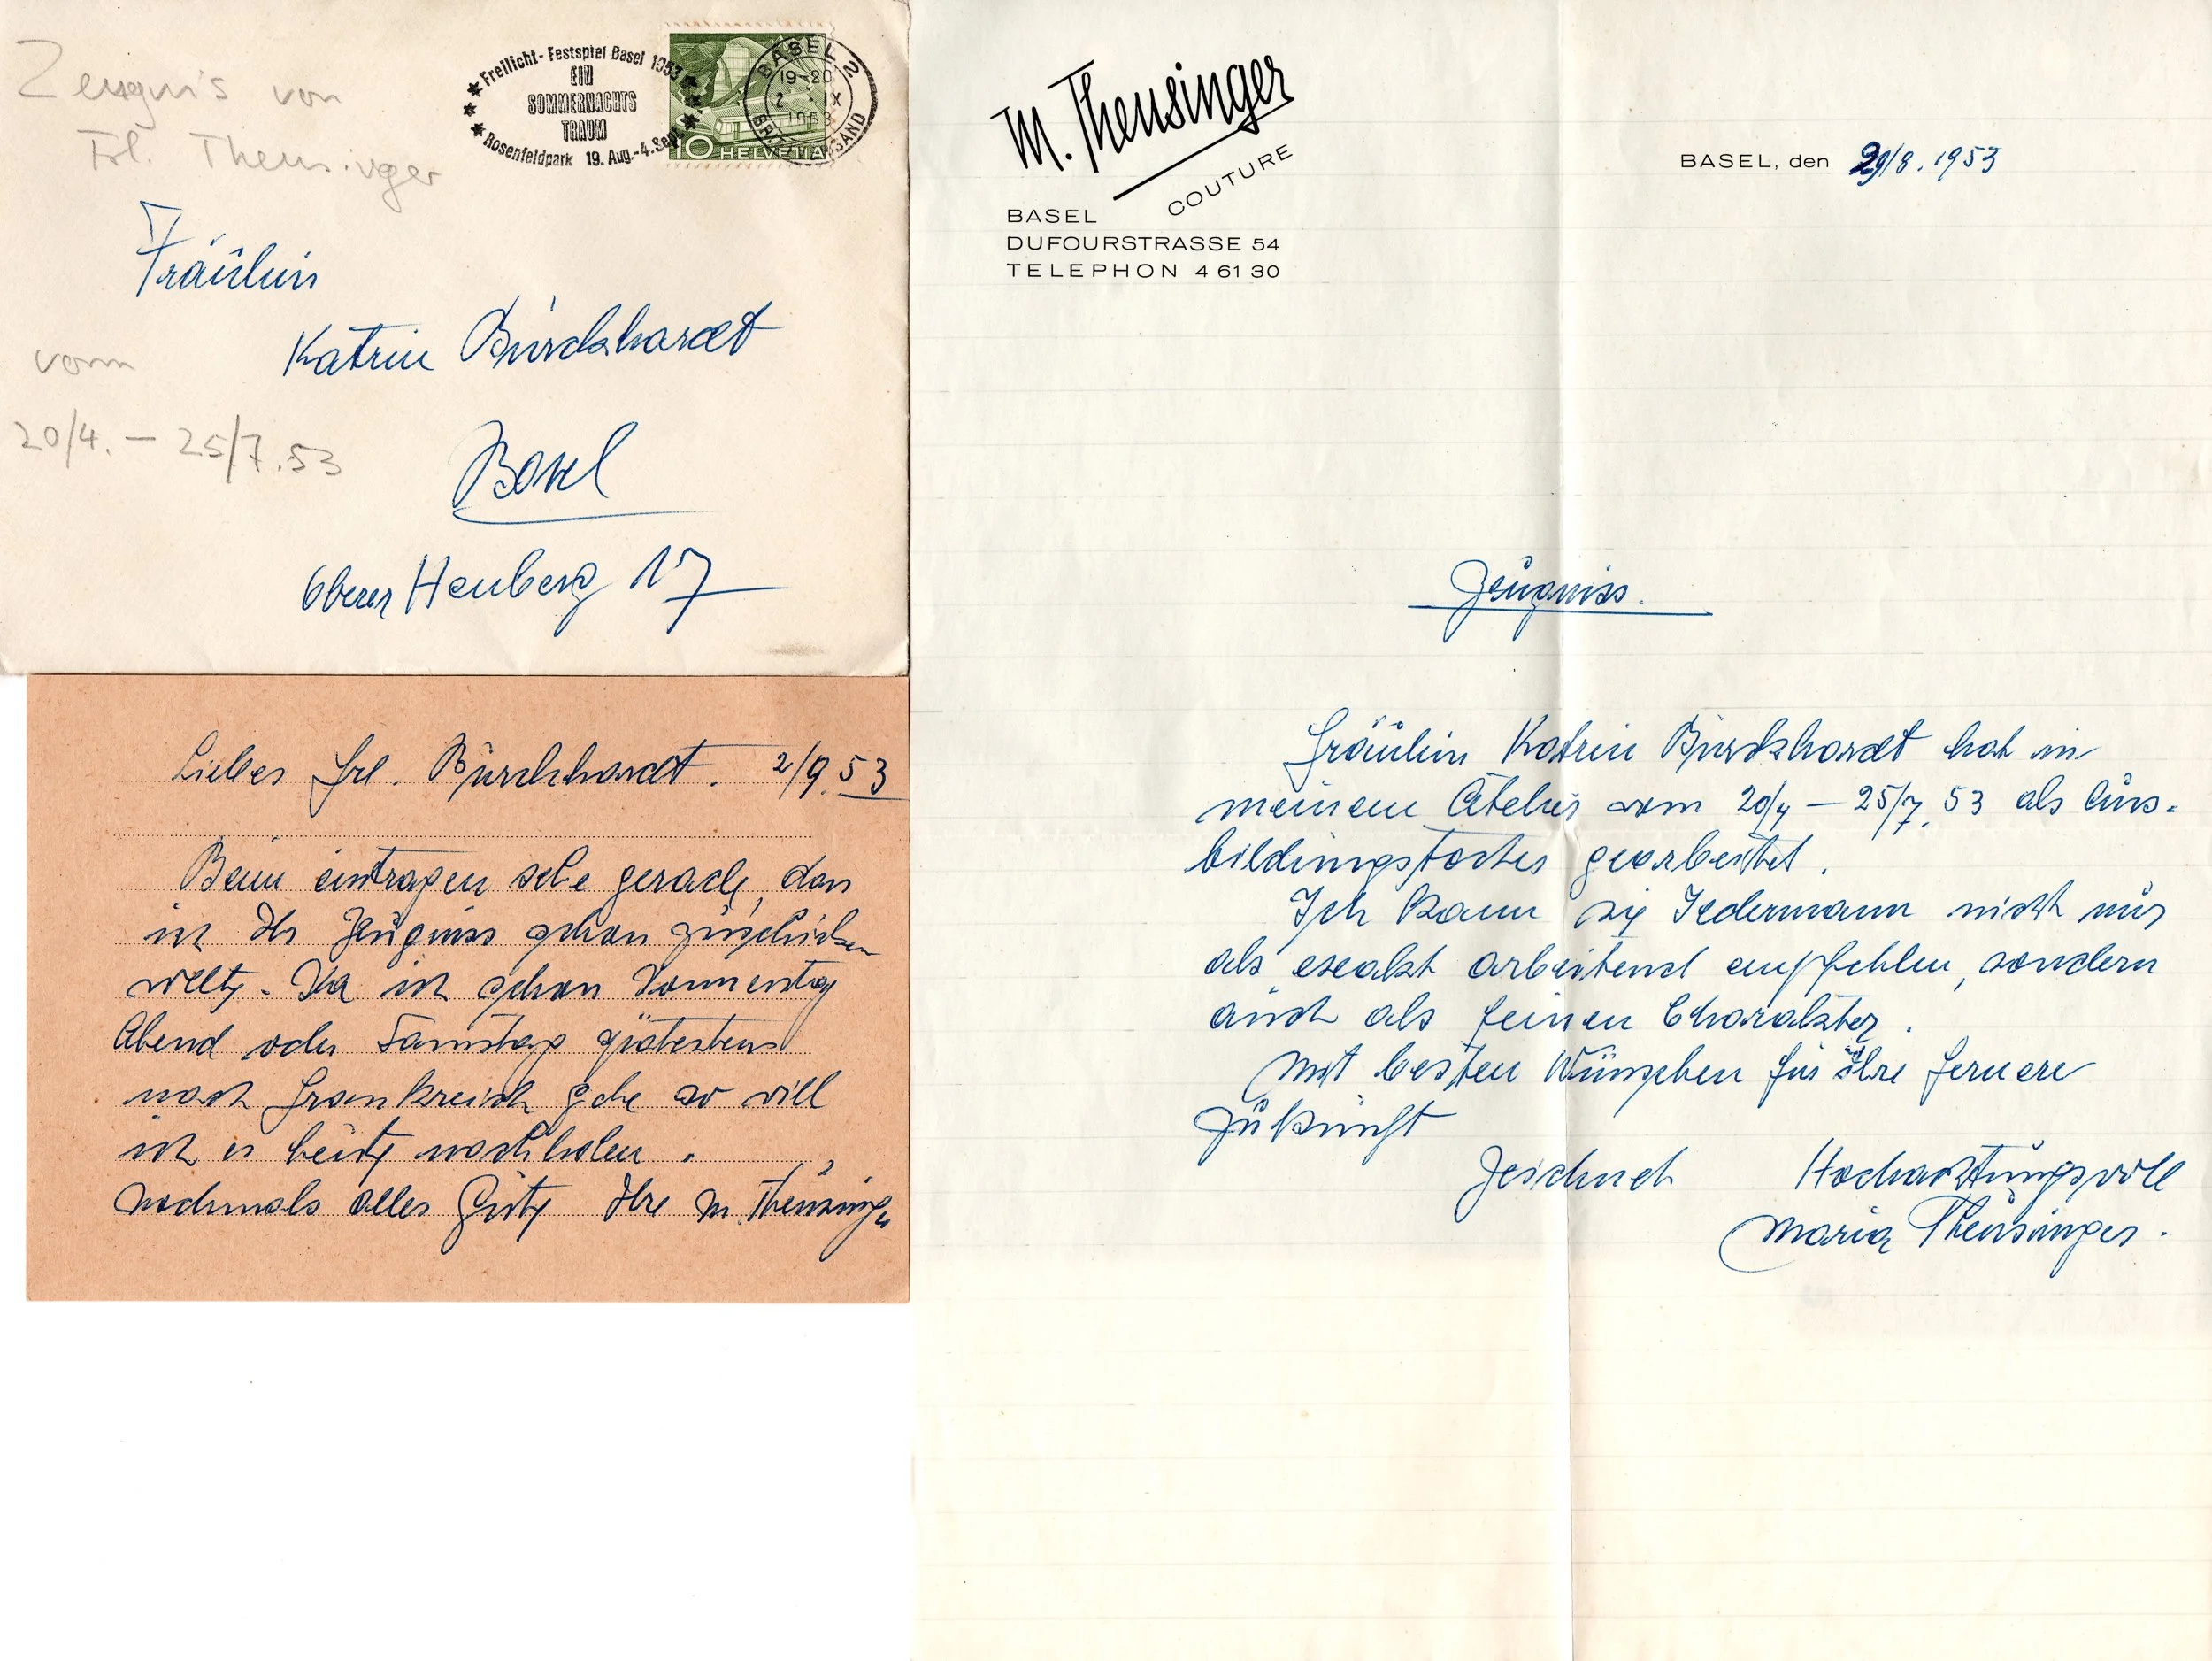 Zeugnis von
Frl. Theusinger
vom
20/4. — 25/7.53
Freilicht-Festspiel Basel 1953
EIN
SOMMERNACHTS
TRAUM
Rosenfeldpark 19. Aug.-4. Sept.
BASEL 2
19-20
2. IX
1953
BRIEFVERSAND
10 HELVETIA
Fräulein
Katrin Burckhardt
Basel
Oberer Heuberg 17
Liebes Frl. Burckhardt. 2/9.53
Beim eintragen sehe gerade, dass
ich Ihr Zeugniss schon zuschicken
wollte. Da ich schon Donnerstag
Abend oder Samstag spätestens
nach Frankreich gehe so will
ich es heute nachholen.
Nochmals alles Gute Ihre M. Theusinger
M. Theusinger
COUTURE
BASEL
DUFOURSTRASSE 54
TELEPHON 4 61 30
BASEL, den 29/8. 1953
Zeugniss.
Fräulein Katrin Burckhardt hat in
meinem Atelier vom 20/4 — 25/7.53 als Aus-
bildungstochter gearbeitet.
Ich kann sie Jedermann nicht nur
als exakt arbeitend empfehlen, sondern
auch als feinen Charakter.
Mit besten Wünschen für ihre fernere
Zukunft
Zeichnet Hochachtungsvoll
Maria Theusinger.